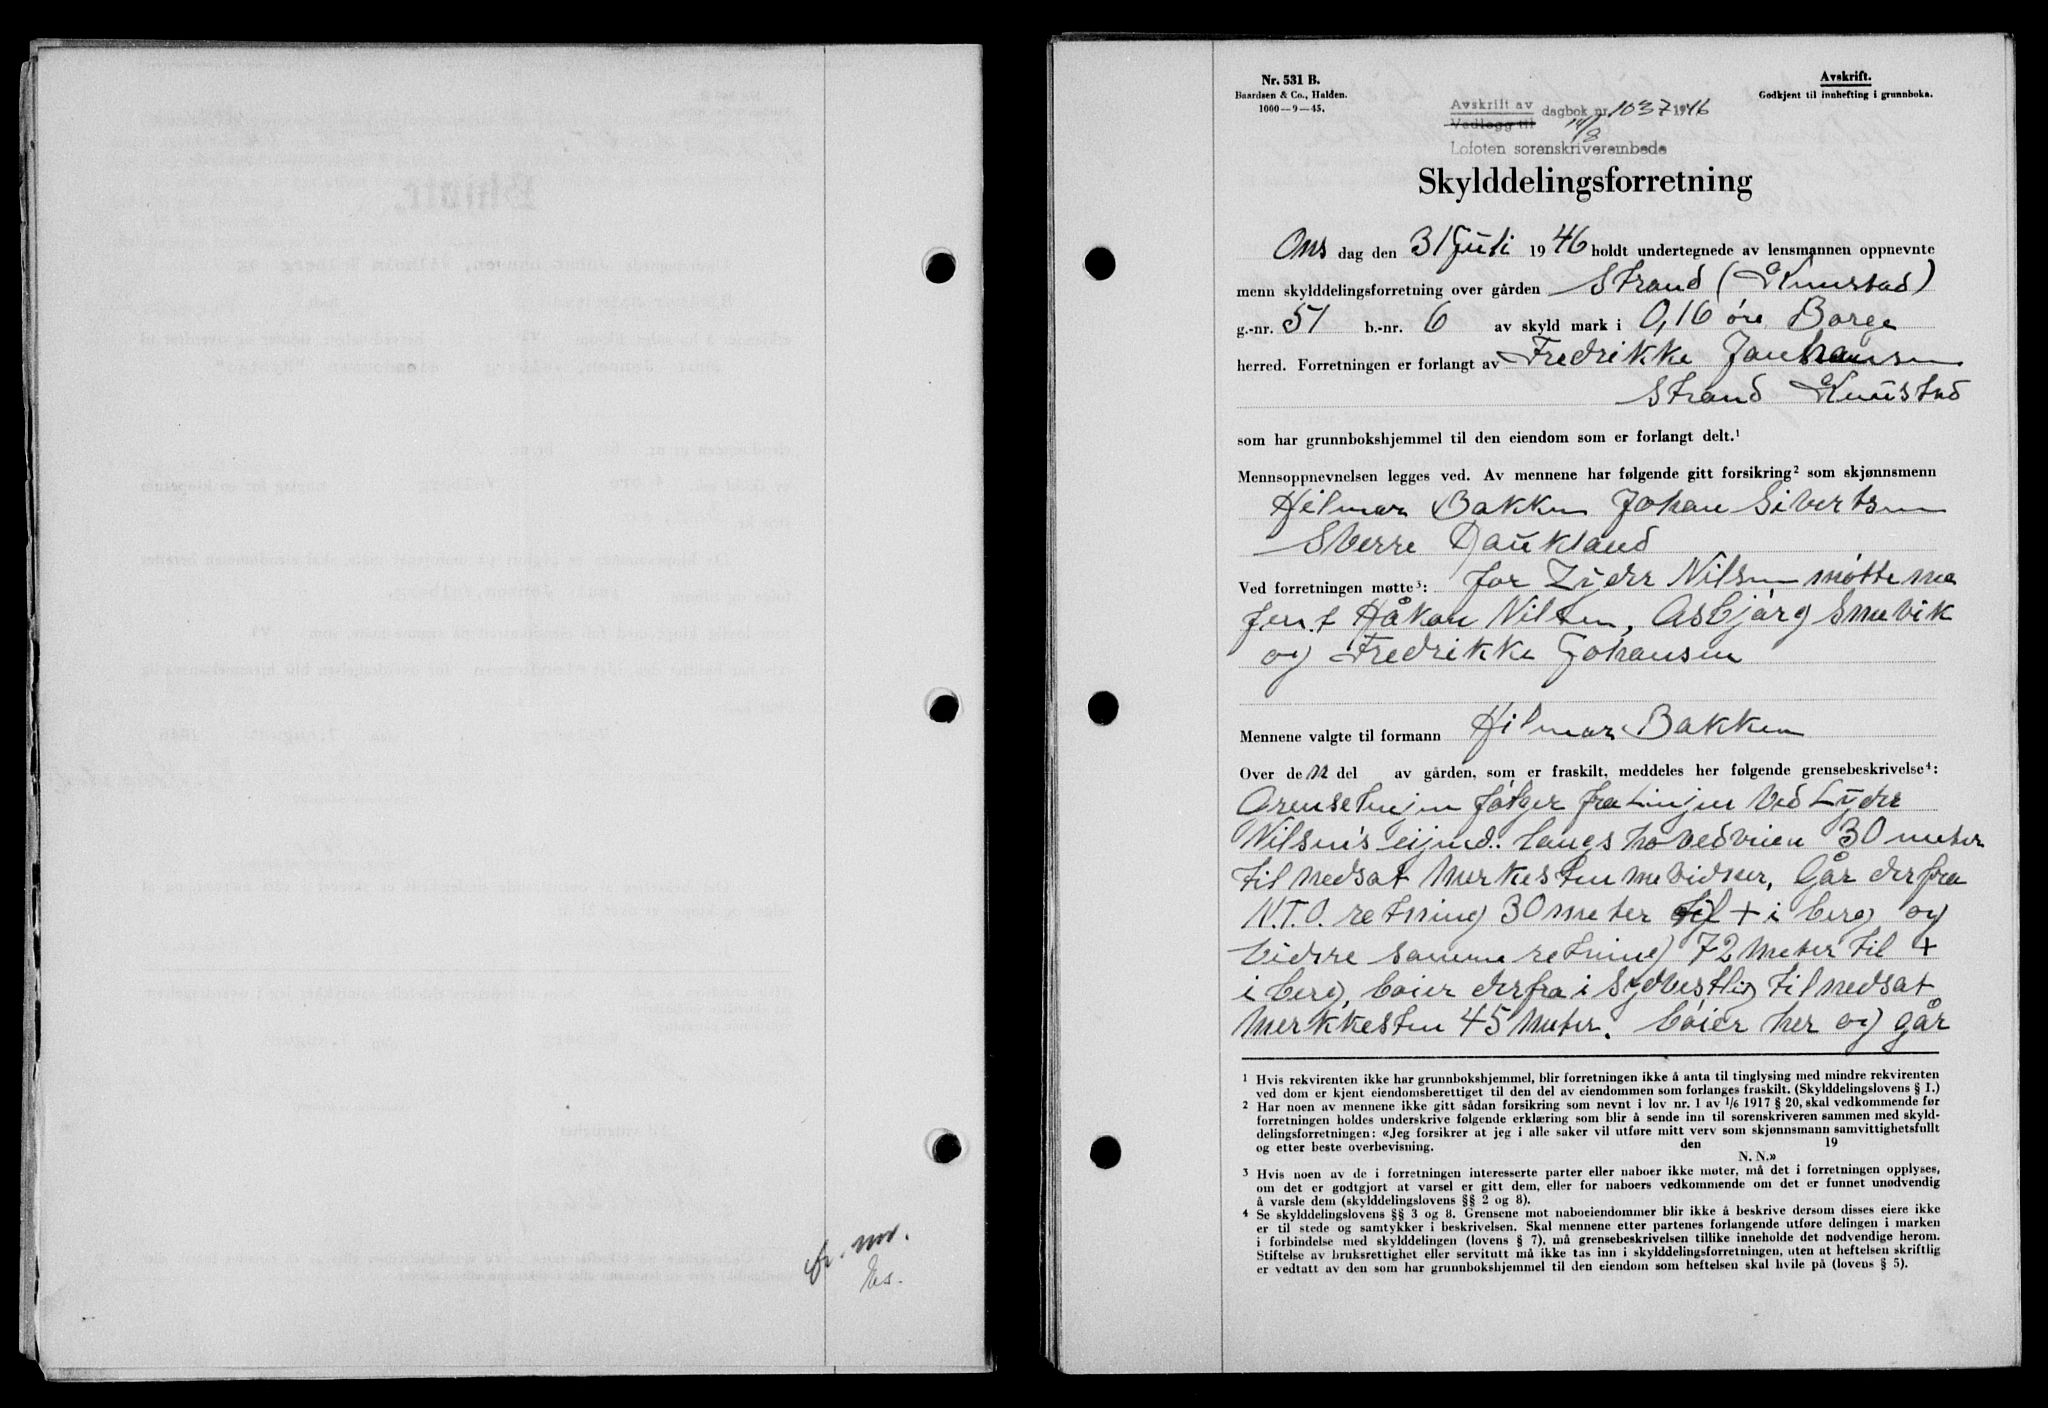 fr. mr.
Nr. 531 B.
Baardsen & Co., Halden.
1000—9—45.
Avskrift.
Godkjent til innhefting i grunnboka.
Avskrift av
Vedlegg til
dagbok nr. 1037 1946
14/8
Lofoten sorenskriverembede
Skylddelingsforretning
Ons dag den 31 Juli 1946 holdt undertegnede av lensmannen oppnevnte
menn skylddelingsforretning over gården Strand (Knustad)
g.-nr. 51 b.-nr. 6 av skyld mark i 0,16 øre Borge
herred. Forretningen er forlangt av Fredrikke Johansen
Strand Knustad
som har grunnbokshjemmel til den eiendom som er forlangt delt.¹
Mennsoppnevnelsen legges ved. Av mennene har følgende gitt forsikring² som skjønnsmenn
Hilmar Bakken Johan Sivertsen
Sverre Haukland
Ved forretningen møtte³: for Lyder Nilsen møtte
Håkon Nilsen, Asbjørg Smevik
og Fredrikke Johansen
Mennene valgte til formann Hilmar Bakken
Over de n del av gården, som er fraskilt, meddeles her følgende grensebeskrivelse⁴:
Grenselinjen følger fra linjen ved Lyder
Nilsen's eijend. langs hovedveien 30 meter
til nedsat merkesten ved veien, Går derfra
N.T.O. retning 30 meter til + i berg og
vidre samme retning 72 meter til +
i berg, bøier derfra i Sydvestlig til nedsat
merkkesten 45 meter. bøier her og går
¹ Hvis rekvirenten ikke har grunnbokshjemmel, blir forretningen ikke å anta til tinglysing med mindre rekvirenten
ved dom er kjent eiendomsberettiget til den del av eiendommen som forlanges fraskilt. (Skylddelingslovens § 1.)
² Har noen av mennene ikke gitt sådan forsikring som nevnt i lov nr. 1 av 1/6 1917 § 20, skal vedkommende før
forretningen holdes underskrive følgende erklæring som blir å sende inn til sorenskriveren sammen med skyld-
delingsforretningen: «Jeg forsikrer at jeg i alle saker vil utføre mitt verv som skjønnsmann samvittighetsfullt
og etter beste overbevisning. den 19
N. N.»
³ Hvis noen av de i forretningen interesserte parter eller naboer ikke møter, må det i forretningen opplyses,
om det er godtgjort at varsel er gitt dem, eller for naboers vedkommende om det er funnet unødvendig
å varsle dem (skylddelingslovens §§ 2 og 8).
⁴ Se skylddelingslovens §§ 3 og 8. Grensene mot naboeiendommer blir ikke å beskrive dersom disses eiere ikke
er til stede og samtykker i beskrivelsen. Skal mennene etter partenes forlangende utføre delingen i marken
i forbindelse med skylddelingen (lovens § 7), må grensebeskrivelsen tillike inneholde det nødvendige herom.
Stiftelse av bruksrettighet eller servitutt må ikke tas inn i skylddelingsforretningen, uten at heftelsen skriftlig
er vedtatt av den som har grunnbokshjemmel til den eiendom som heftelsen skal hvile på (lovens § 5).